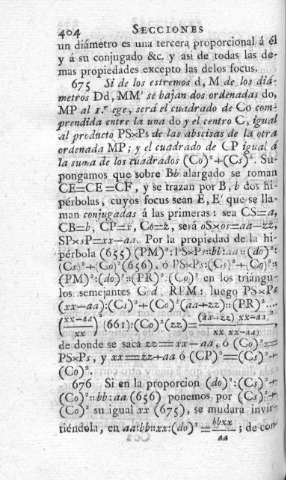 404 SECCIONES
un diámetro es una tercera proporcional á él
y á su conjugado &c. y asi de todas las de-
mas propiedades excepto las delos focus.
675 Si de los estremos d, M de los diá-
metros Dd, MM' se bajan dos ordenadas do,
MP al 1.º ege, será el cuadrado de Co com-
prendida entre la una do y el centro C, igual
al producto PS×Ps de las abscisas de la otra
ordenada MP; y el cuadrado de CP igual á
la suma de los cuadrados (Co)²+(CS)². Su-
pongamos que sobre Bb alargado se toman
CE=CE'=CF, y se trazan por B, b dos hi-
pérbolas, cuyos focus sean E, E' que se lla-
man conjugadas á las primeras: sea CS=a,
CB=b, CP=x, Co=z, será oS×os=aa−zz,
SP×sP=xx−aa. Por la propiedad de la hi-
pérbola (655) (PM)²:PS×Ps::bb:aa::(do)²:
(Cs)²+(Co)²(656), ó PS×Ps:(Cs)²+(Co)²::
(PM)²:(do)²::(PR)²:(Co)² en los triángu-
los semejantes Cod, RPM: luego PS×Ps
(xx−aa):(Cs)²+(Co)²(aa+zz)::(PR)²....
(661):(Co)²(zz)=
de donde se saca zz=xx−aa, ó (Co)²=
PS×Ps, y xx=zz+aa ó (CP)²=(Cs)²+
(Co)².
676 Si en la proporcion (do)²:(Cs)²+
(Co)²::bb:aa (656) ponemos por (Cs)²+
(Co)² su igual xx (675), se mudará invir-
tiéndola, en aa:bb::xx:(do)²=bbxx/aa; de con-